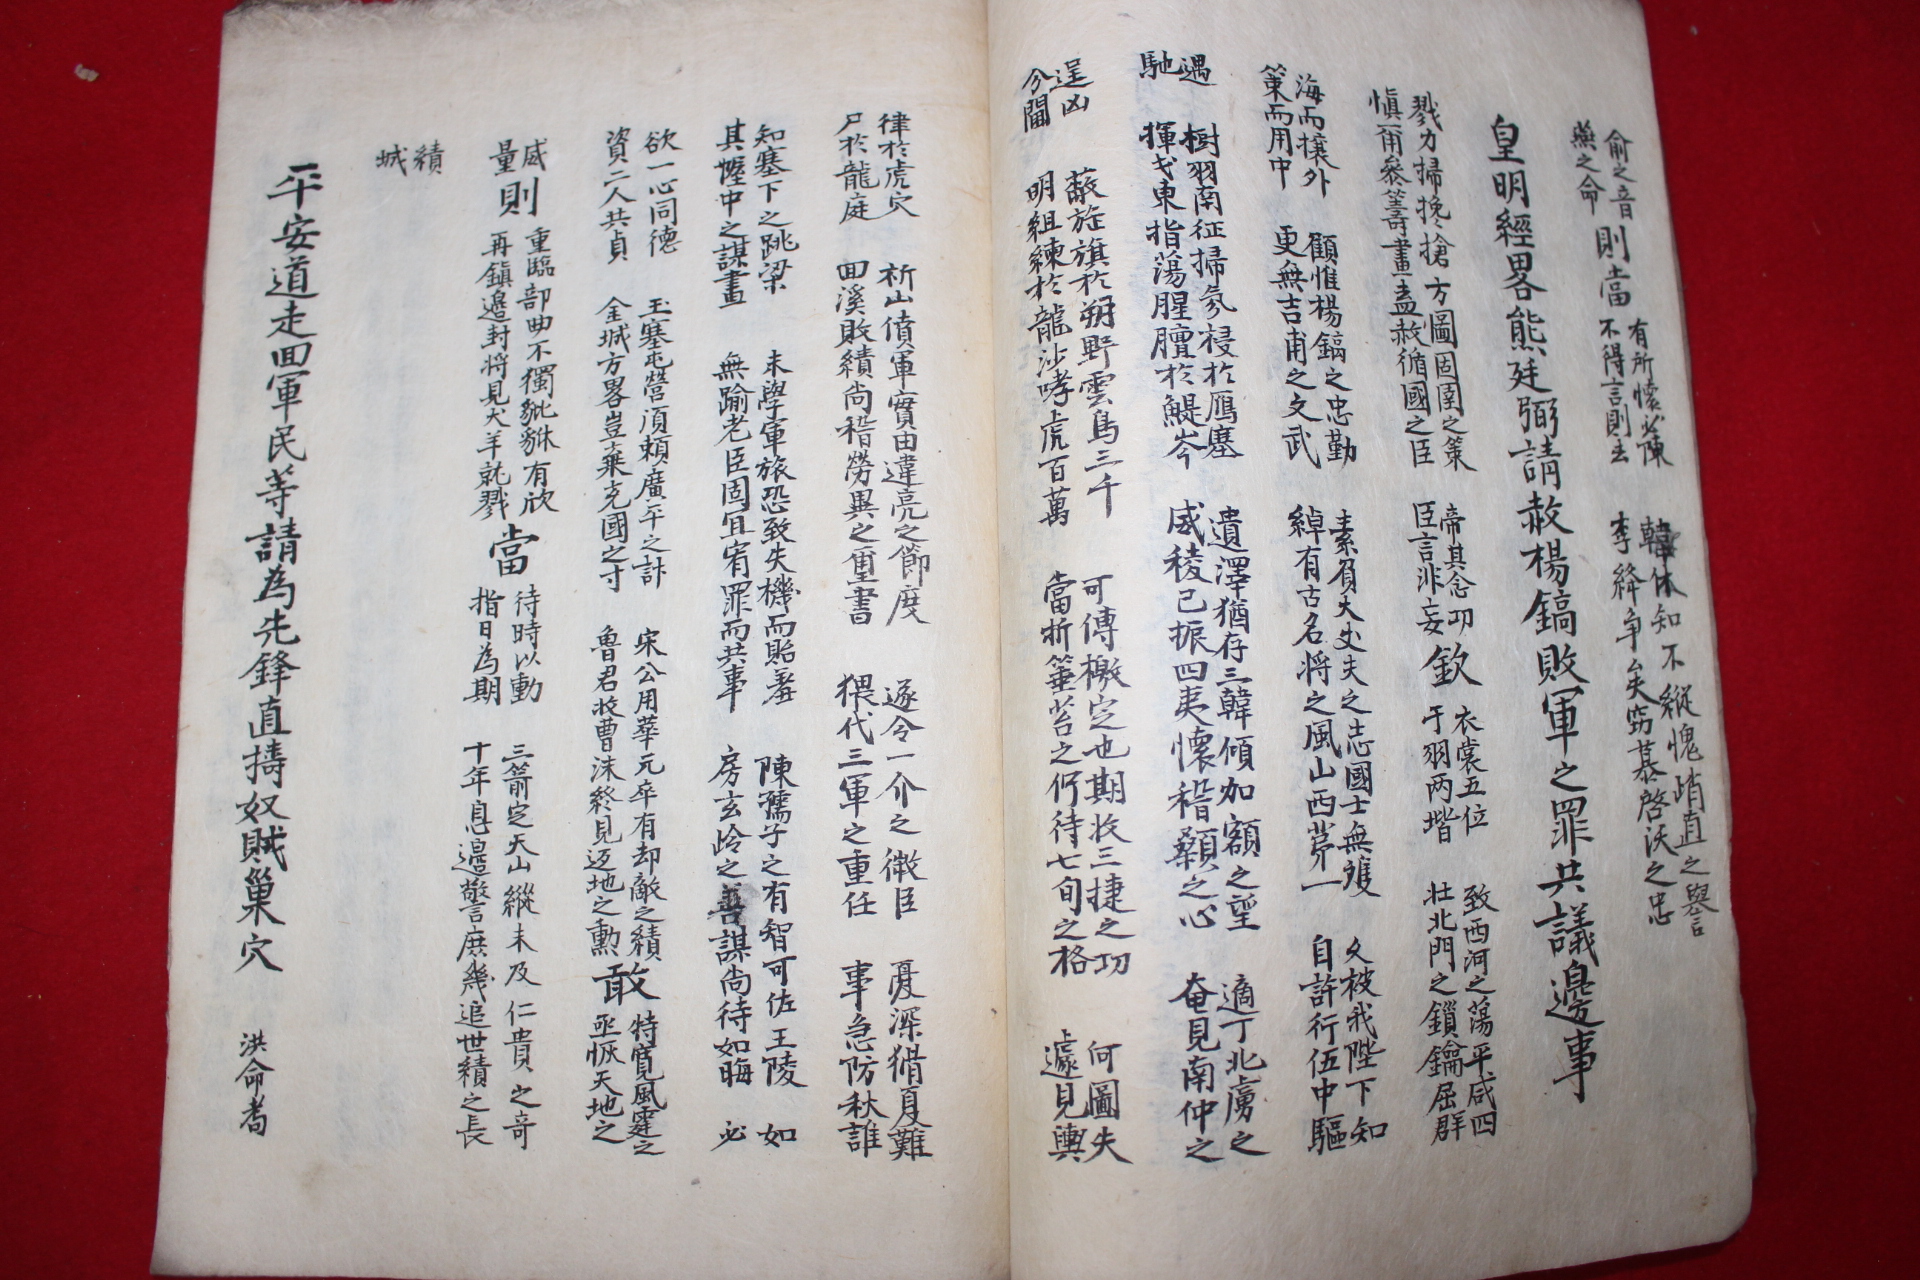 俞之音
無之命
則當
有所懷必陳
不得言則去
韓休知不縱愧峭直之譽
李絳爭矣窃慕啓沃之忠
皇明經畧熊廷弼請赦楊鎬敗軍之罪共議邊事
戮力掃攙搶方圖固圉之策
愼甭叅籌畫盍赦循國之臣
帝其念功
臣言非妄
欽
衣裳五位
于羽两堦
致西河之蕩平咸四
壯北門之鎖鑰屈群
海而攘外
策而用中
顧惟楊鎬之忠勤
更無吉甫之文武
素負大丈夫之志國士無雙
綽有古名将之風山西苐一
久被我陛下知
自許行伍中驅
遇
馳
樹羽南征掃氛祲於鴈塞
揮戈東指蕩腥膻於鯷岑
遺澤猶存三韓傾加額之望
威稜已振四夷懷稽顙之心
適丁北虜之
奄見南仲之
逞凶
分閫
蔽旌旗於朔野雲鳥三千
明組練於龍沙哮虎百萬
可傳檄定也期收三捷之功
當折箠笞之何待七旬之格
何圖失
遽見輿
律於虎穴
尸於龍庭
祈山僨軍實由違亮之節度
回溪敗績尚稽勞異之璽書
遂令一介之微臣
猥代三軍之重任
憂深猾夏難
事急防秋誰
知塞下之跳梁
其幄中之謀畫
未學軍旅恐致失機而貽羞
無踰老臣固宜宥罪而共事
陳孺子之有智可佐王陵如
房玄齡之善謀尚待如晦必
欲一心同德
資二人共貞
玉塞屯營須賴廣平之計
金城方畧豈棄充國之寸
宋公用華元卒有却敵之績
魯君收曹沫終見返地之勳
敢
特寬風霆之
亟恢天地之
威
量
則
重臨部曲不獨貔貅有欣
再鎭邊封将見犬羊就戮
當
待時以動
指日為期
三箭定天山縱未及仁貴之奇
十年息邊警庶幾追世績之長
績
城
平安道走回軍民等請為先鋒直擣奴賊巢穴 洪命耇